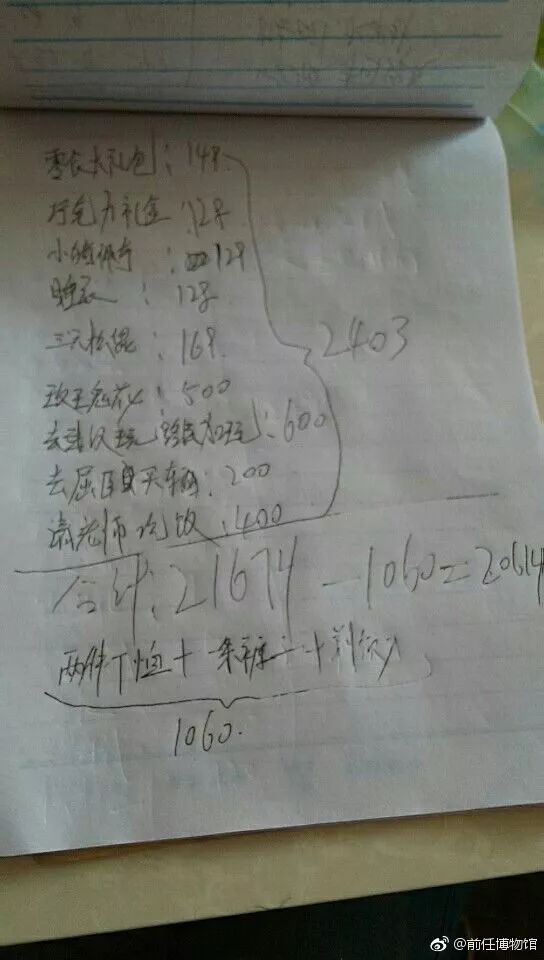 零食大礼包：148
巧克力礼盒：128
小熊：129
睡衣：128
三只松鼠：169
玫瑰花：500
去武汉玩：600
去屈臣买车：200
请老师吃饭：400
2403
合计：21674－1060＝20614
两件T恤＋一条裤子＋
1060.
@前任博物馆